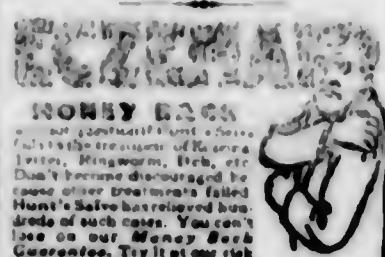 ECZEMA
MONEY BACK
Hunt's Salve
the treatment of Eczema
Tetter, Ringworm, Itch, etc
Don't become discouraged be
cause other treatments failed
Hunt's Salve has relieved hun
dreds of such cases. You can't
lose on our Money Back
Guarantee. Try it at our risk